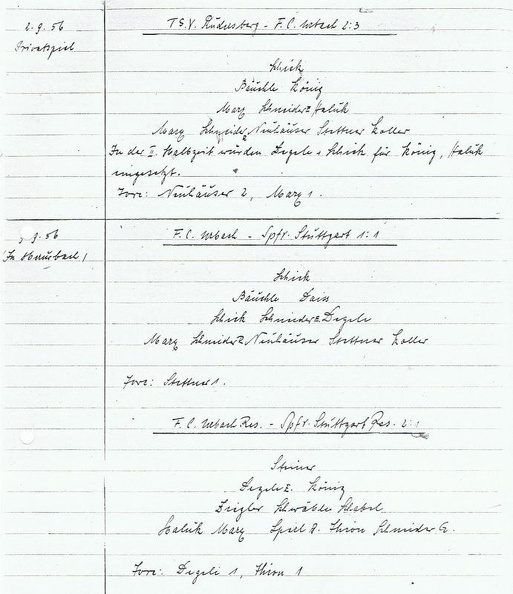 2.9.56
Privatspiel
T.S.V. Rudersberg - F.C. Urbach 2:3
Schick
Bäuchle König
Marx Schneider Haluk
Marx Schneider Neuhäuser Stettner Koller
In der II. Halbzeit wurden Degele u. Schick für König, Haluk
eingesetzt.
Tore: Neuhäuser 2, Marx 1.
9.56
F.C. Urbach - Spfr. Stuttgart 1:1
Schick
Bäuchle Daiss
Schick Schneider Degele
Marx Schneider Neuhäuser Stettner Koller
Tore: Stettner 1.
F.C. Urbach Res. - Spfr. Stuttgart Res. 2:
Steiner
Degele König
Ziegler Schwäble Schabel
Haluk Marx Thron Schneider G.
Tore: Degele 1, Thron 1